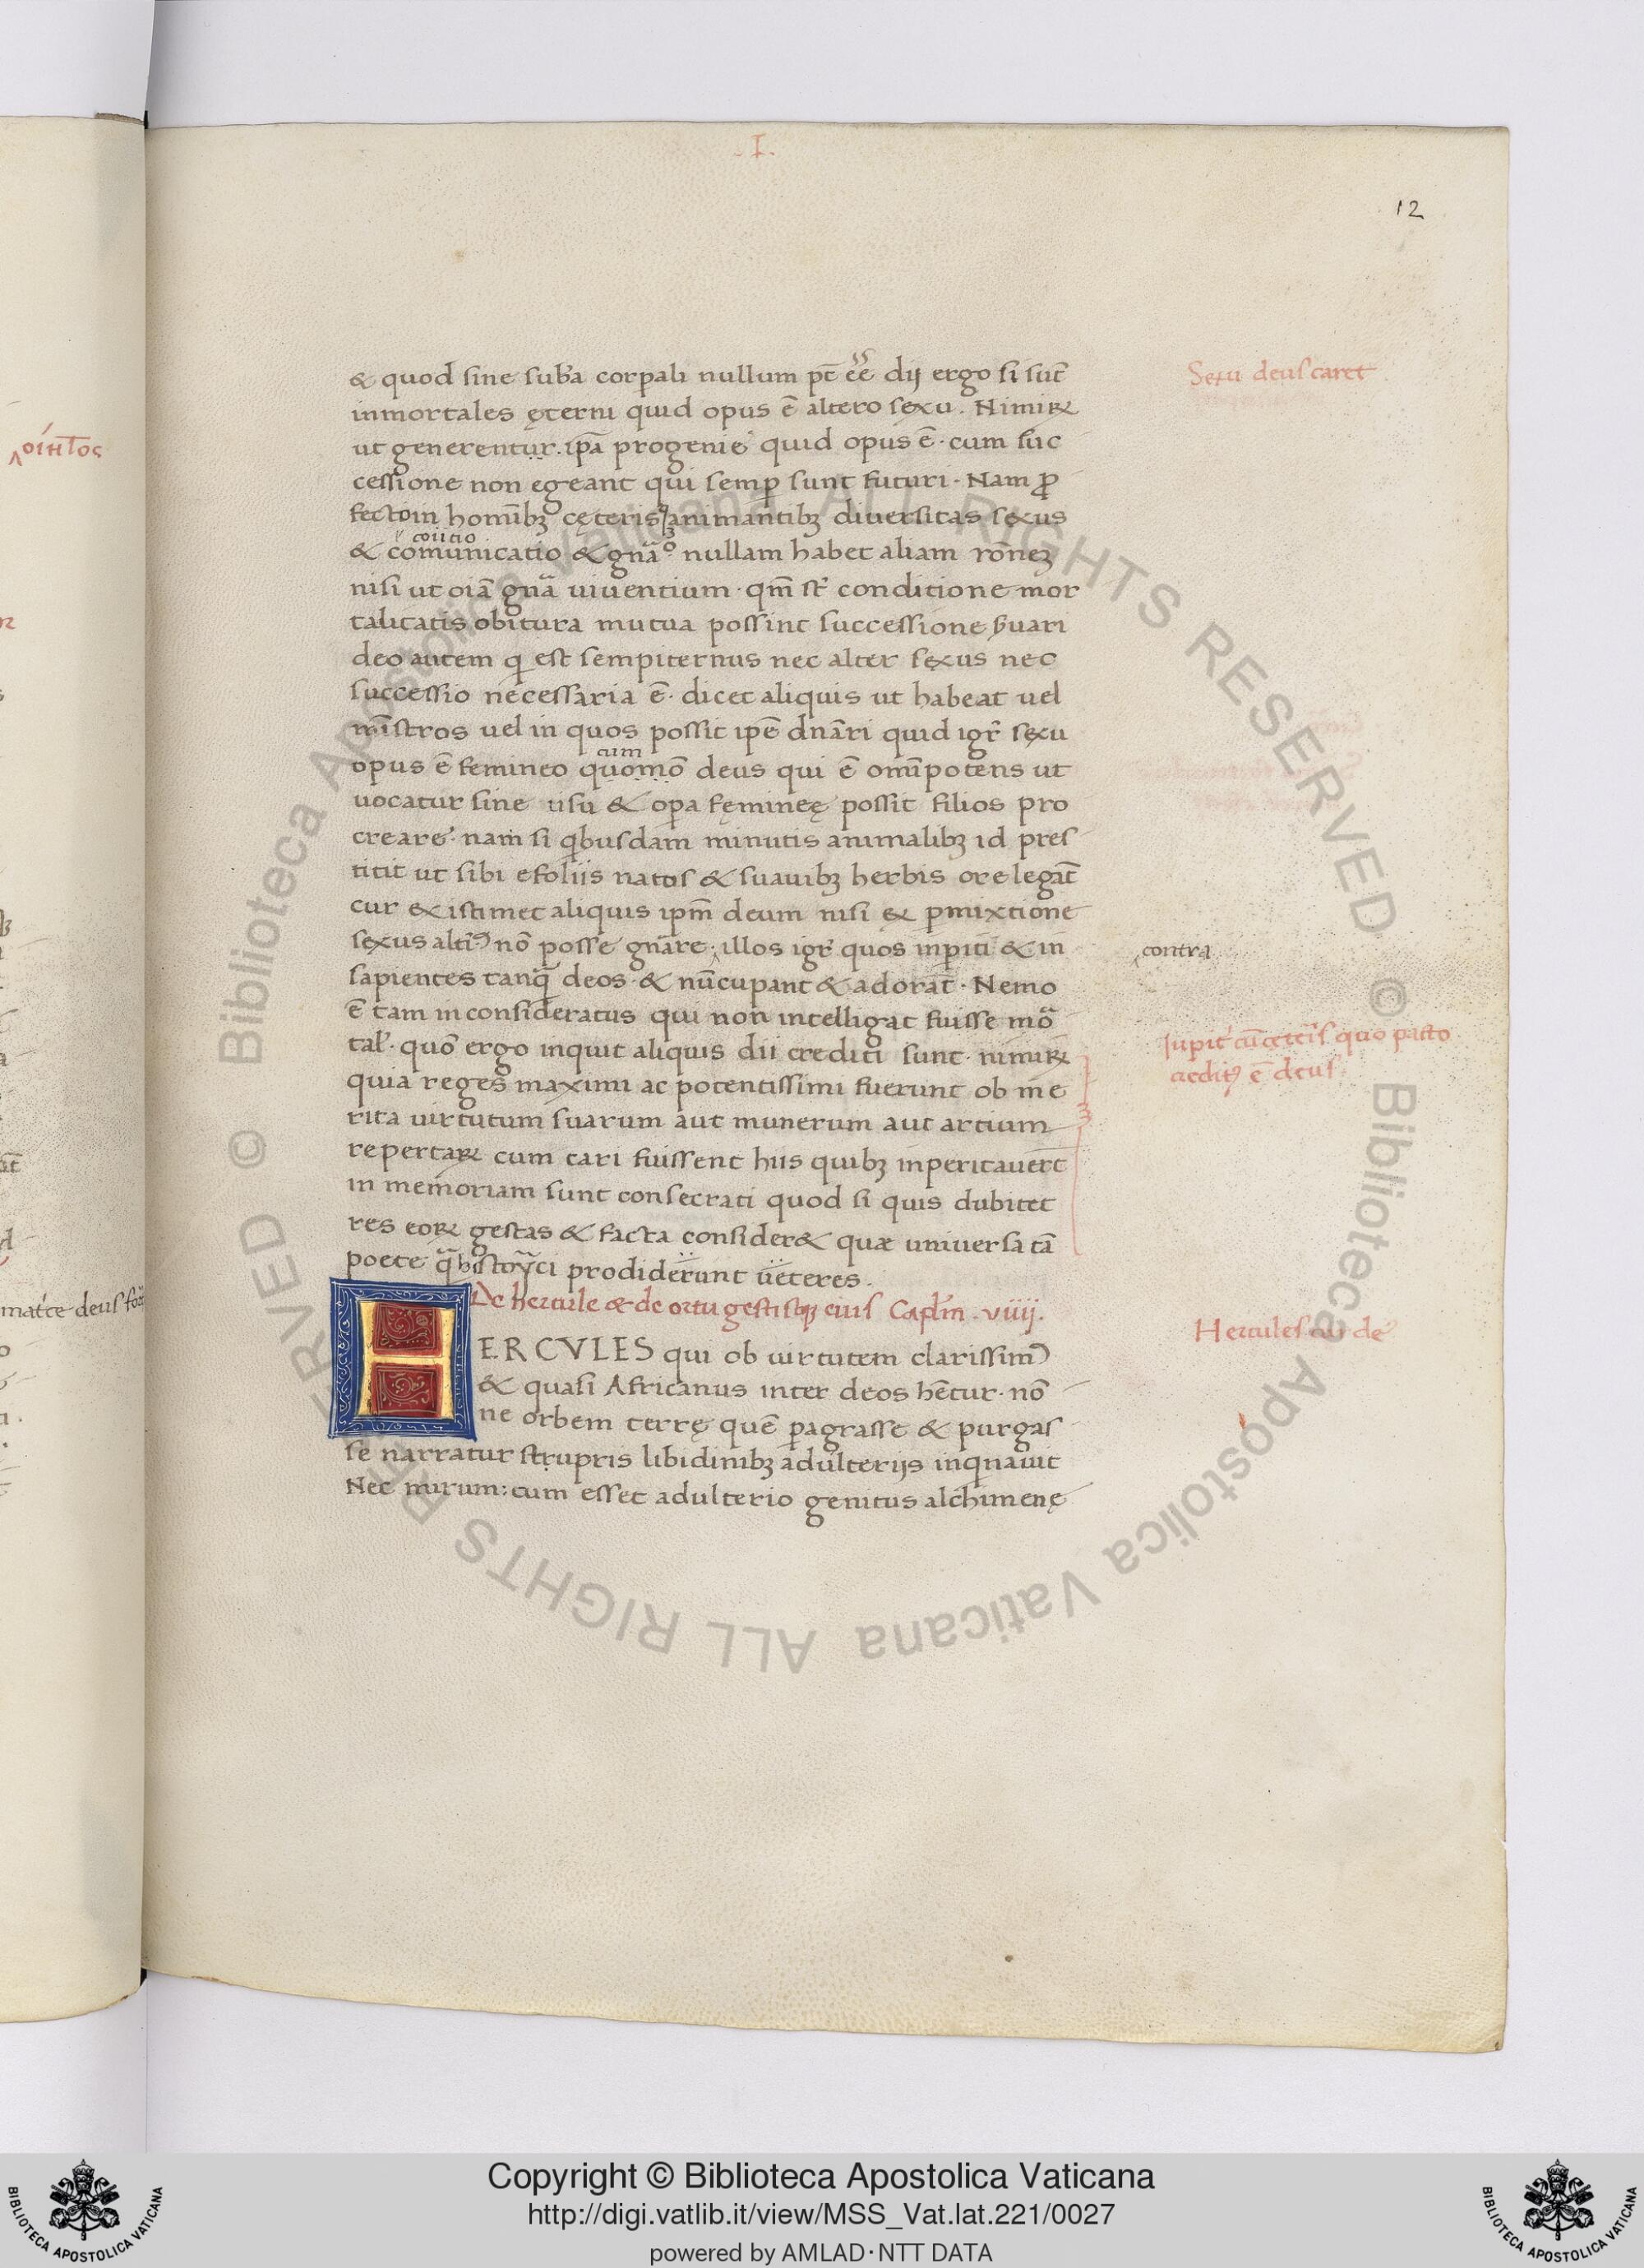 .I.
12
& quod sine sub̄a corpali nullum pt̄ ēē dij ergo si sut̄
inmortales ęterni quid opus ē altero sexu. Nimiꝝ
ut generentur. ip̄a progenie quid opus ē · cum suc
cessione non egeant qui semꝑ sunt futuri · Nam ꝓ
fecto in homīb; cęterisq; animantib; diuersitas sexus
coitio
& comunicatio & gnāo nullam habet aliam rōnez
nisi ut oīa gnā uiuentium · qm̄ st̄ conditione mor
talitatis obitura mutua possint successione ẜuari
deo autem q est sempiternus nec alter sexus nec
successio necessaria ē · dicet aliquis ut habeat uel
mīstros uel in quos possit ip̄e dnāri quid igr̄ sexu
cum
opus ē femineo quomō deus qui ē omīpotens ut
uocatur sine usu & oꝑa fęmineę possit filios pro
creare · nam si qbusdam minutis animalib; id pres
titit ut sibi e foliis natos & suauib; herbis ore legāt
cur existimet aliquis ipm̄ deum nisi ex ꝑmixtione
sexus altīꝰ nō posse gnāre · illos igr̄ quos inꝑiti & in
contra
sapientes tanq̄ deos · & nūcupant & adorāt · Nemo
ē tam inconsideratus qui non intelligat fuisse mō
tal̕ · quō ergo inquit aliquis dii crediti sunt · nimiꝝ
quia reges maximi ac potentissimi fuerunt ob me
rita uirtutum suarum aut munerum aut artium
repertaꝝ cum cari fuissent hiis quib; inperitauer̄t
in memoriam sunt consecrati quod si quis dubitet
res eoꝝ gestas & facta consider& quæ uniuersa tā
poete q̄ historyci prodiderunt ueteres.
De hercule & de ortu gestisq; eius Caplm̄ . viiij.
HERCVLES qui ob uirtutem clarissimꝰ
& quasi Africanus inter deos hētur · nō
ne orbem terrę quē ꝑagrasse & purgas
se narratur strupris libidinib; adulterijs inqnauit
Nec mirum: cum esset adulterio genitus alchimenę
Sexu deus caret
Iupit̕ cū cęteis̄ quo pacto
creditꝰ ē deus
Hercules
οἱητος
Biblioteca Apostolica Vaticana ALL RIGHTS RESERVED ©
Biblioteca Apostolica Vaticana ALL RIGHTS RESERVED ©
Copyright © Biblioteca Apostolica Vaticana
http://digi.vatlib.it/view/MSS_Vat.lat.221/0027
powered by AMLAD·NTT DATA
BIBLIOTECA APOSTOLICA VATICANA
BIBLIOTECA APOSTOLICA VATICANA